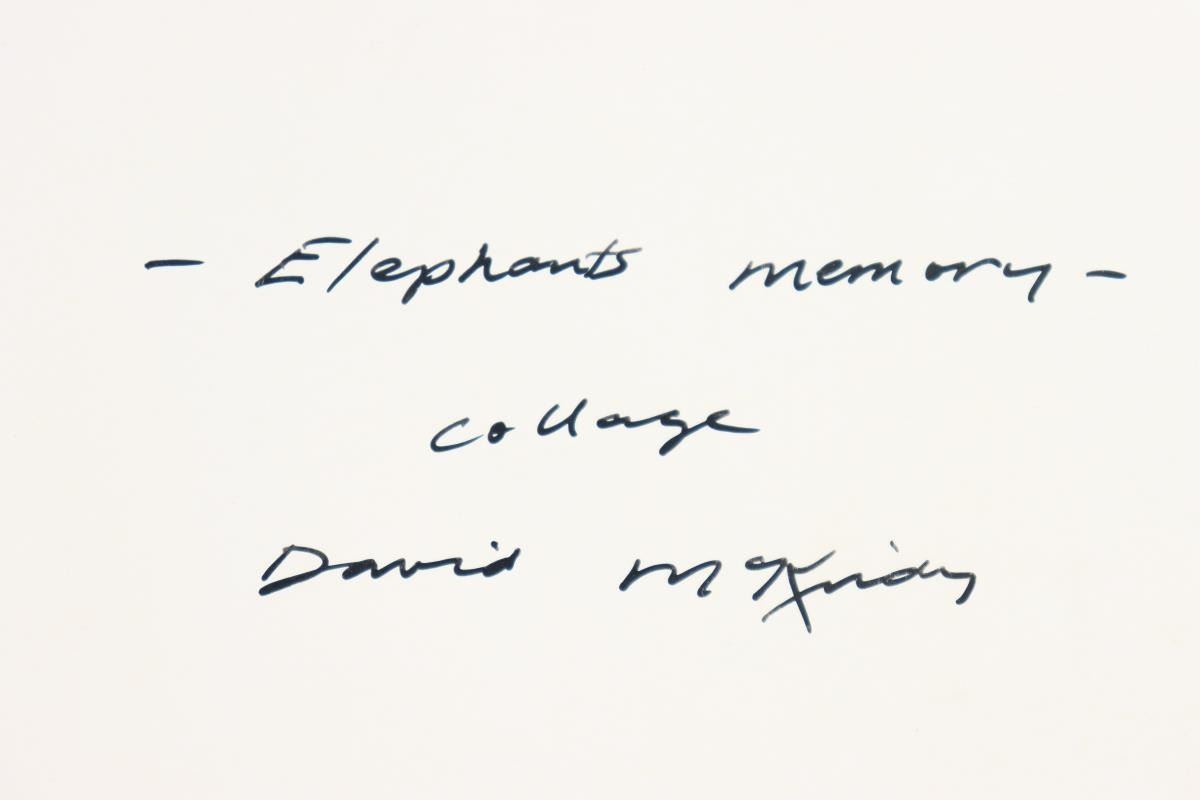 - Elephants memory -
collage
David